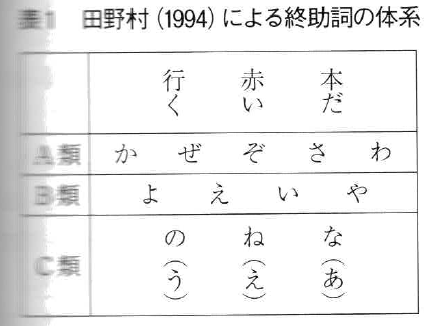 表1 田野村(1994)による終助詞の体系
行く 赤い 本だ
A類 か ぜ ぞ さ わ
B類 よ え い や
C類 の(う) ね(え) な(あ)